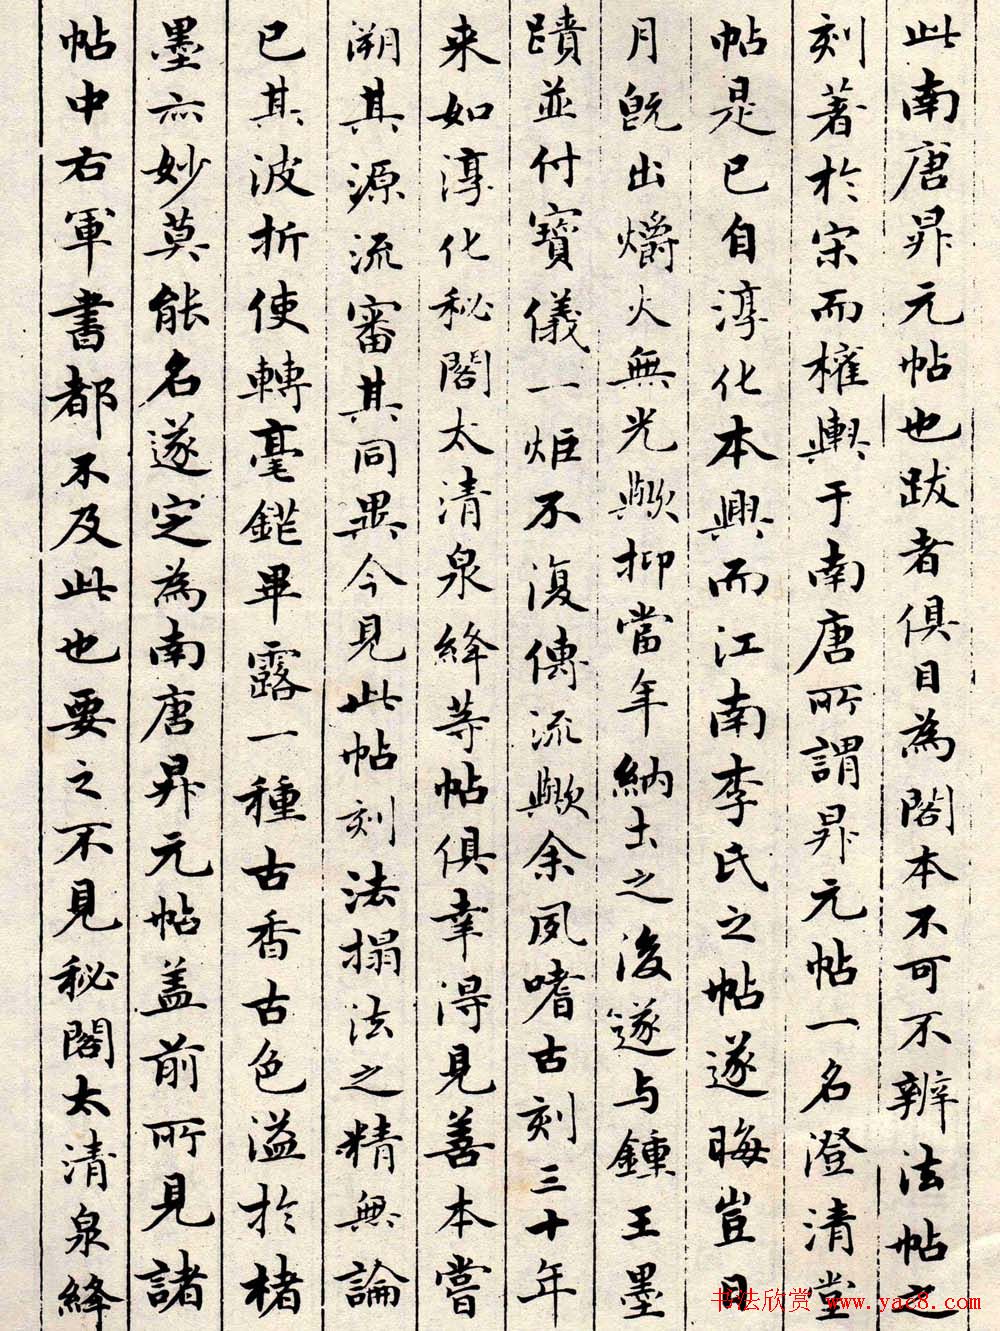 此南唐昇元帖也跋者俱目為閣本不可不辨法帖之
刻著於宋而權輿于南唐所謂昇元帖一名澄清堂
帖是已自淳化本興而江南李氏之帖遂晦豈日
月既出爝火無光歟抑當年納土之後遂与鍾王墨
蹟並付寶儀一炬不復傳流歟余夙嗜古刻三十年
来如淳化秘閣太清泉絳等帖俱幸得見善本嘗
溯其源流審其同異今見此帖刻法搨法之精無論
已其波折使轉毫鋩畢露一種古香古色溢於楮
墨亦妙莫能名遂定為南唐昇元帖盖前所見諸
帖中右軍書都不及此也要之不見秘閣太清泉絳
书法欣赏 www.yac8.com